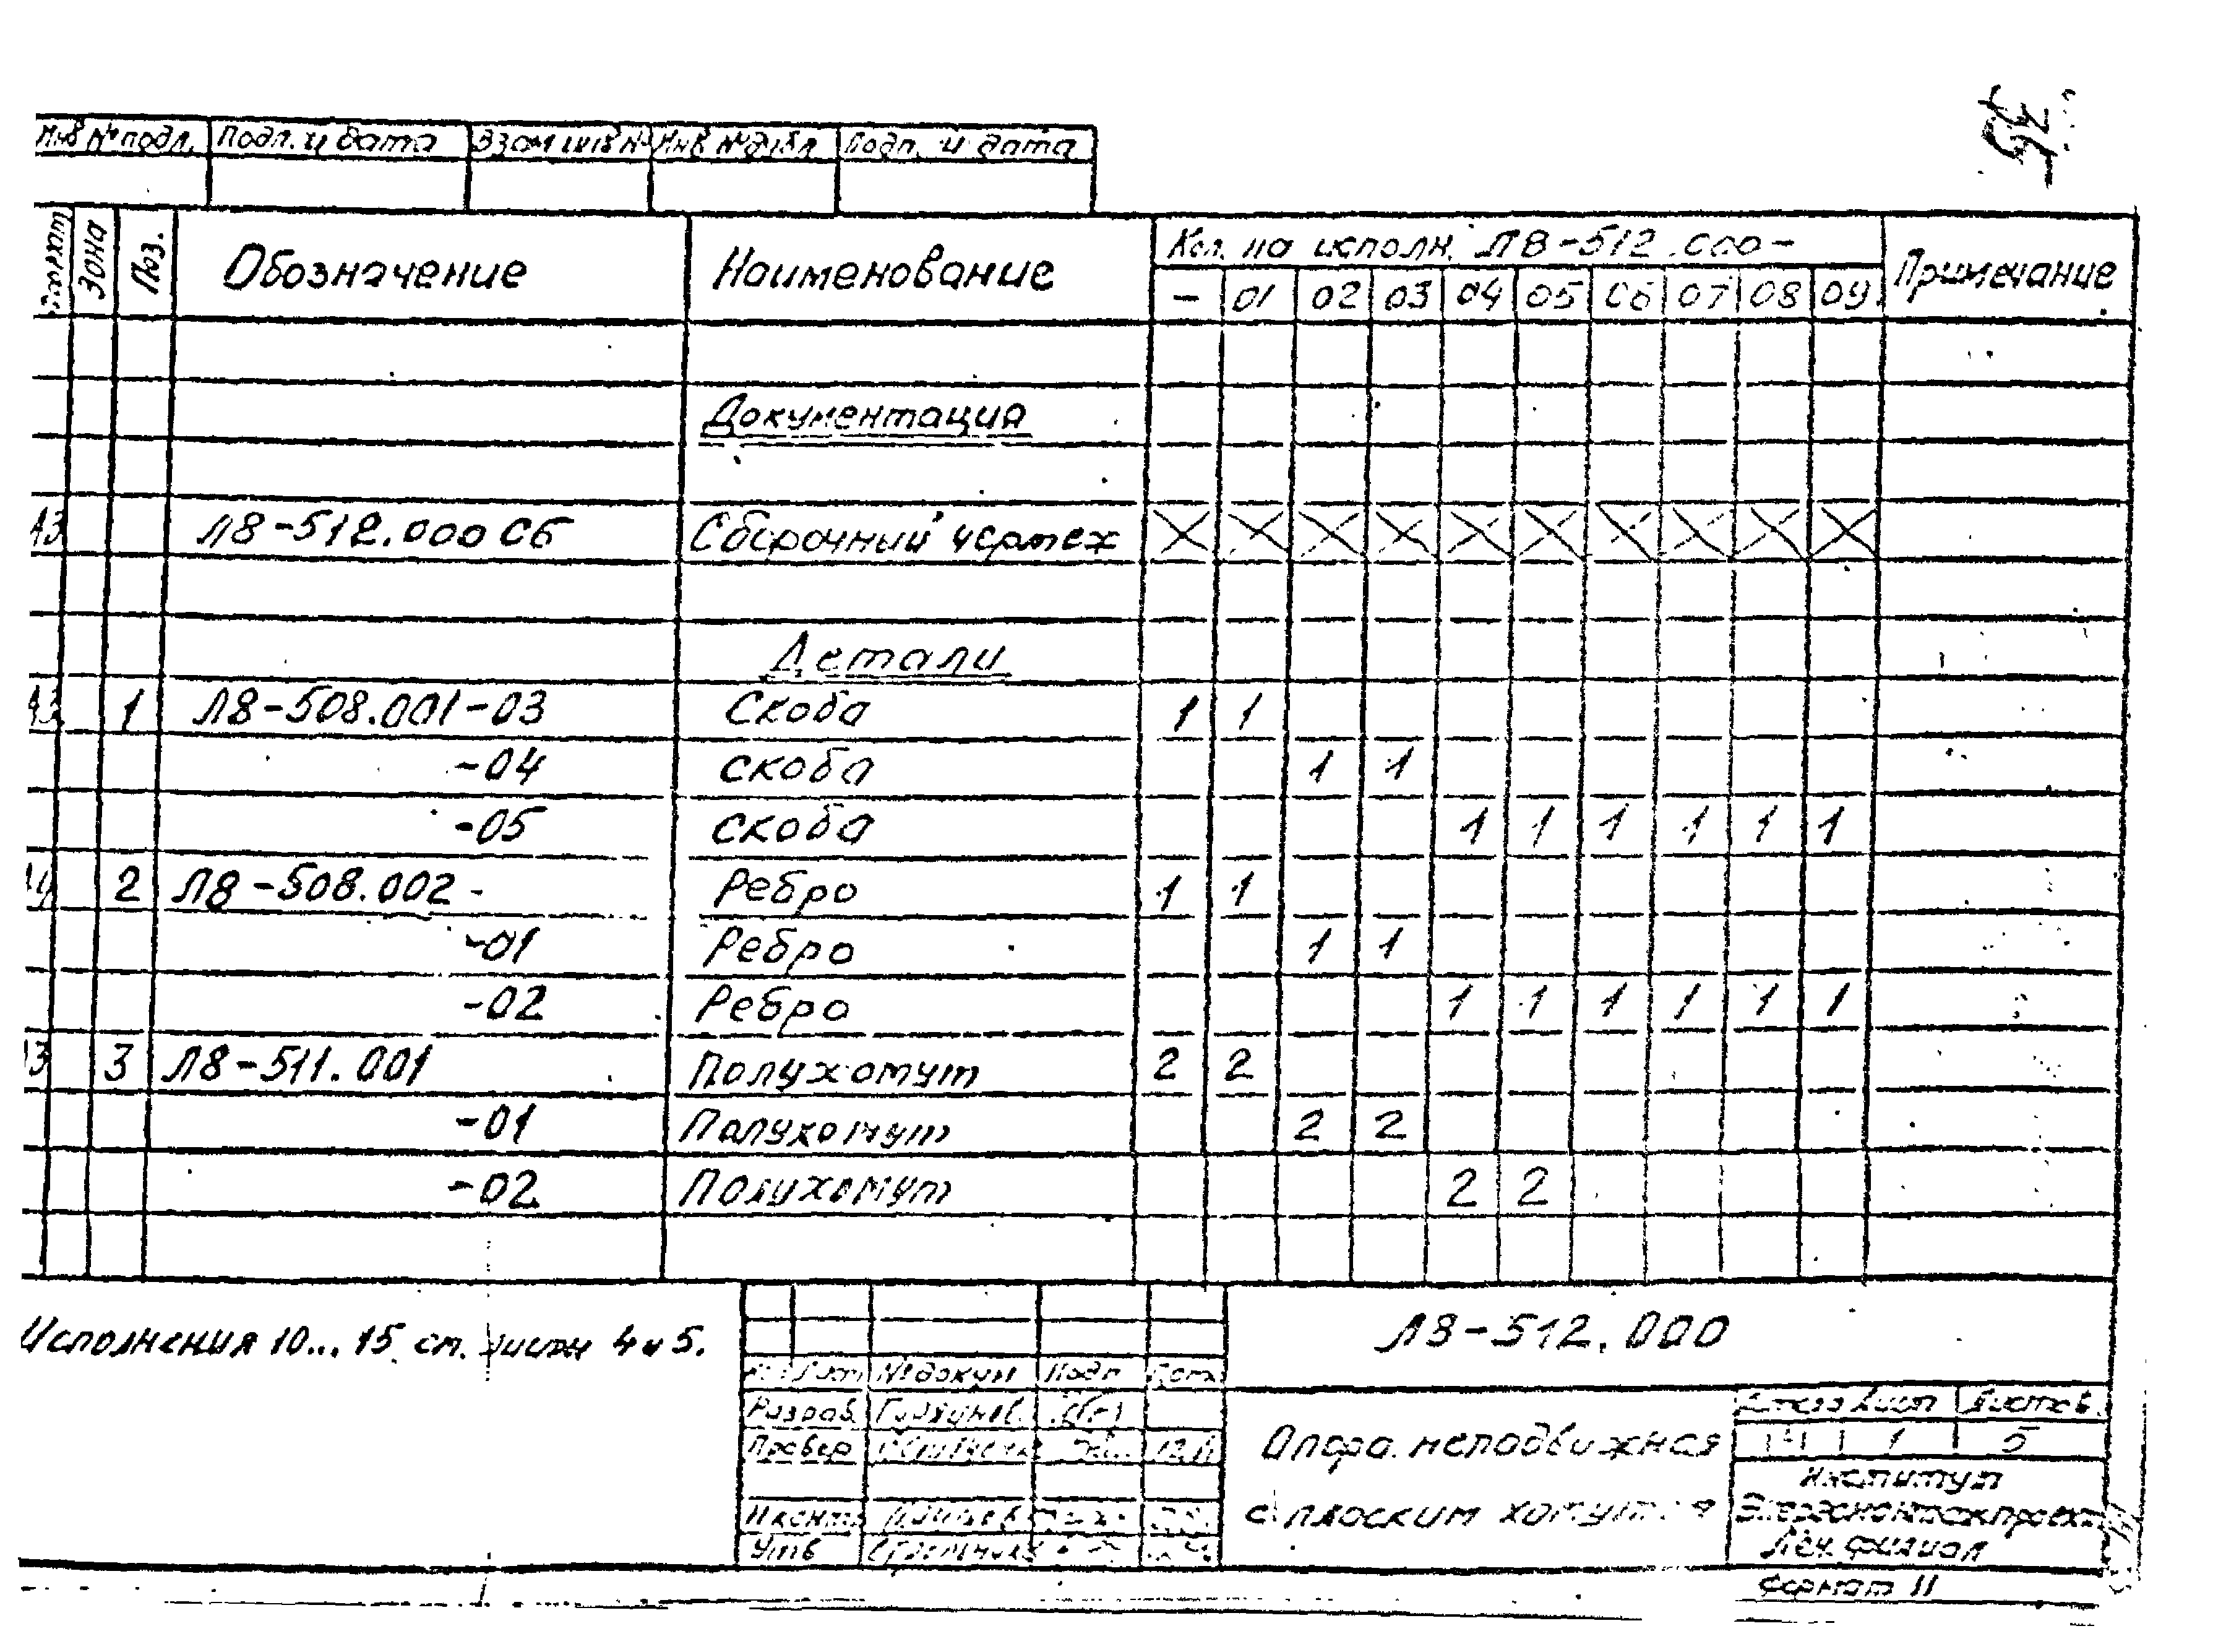 Инв № подл. Подп. и дата Взам инв № Инв № дубл Подп. и дата
Формат Зона Поз. Обозначение Наименование Кол. на исполн. Л8-512.000- Примечание
- 01 02 03 04 05 06 07 08 09
Документация
А3 Л8-512.000 СБ Сборочный чертеж X X X X X X X X X X
Детали
А3 1 Л8-508.001-03 Скоба 1 1
-04 скоба 1 1
-05 скоба 1 1 1 1 1 1
А4 2 Л8-508.002 - Ребро 1 1
-01 Ребро 1 1
-02 Ребро 1 1 1 1 1 1
А3 3 Л8-511.001 Полухомут 2 2
-01 Полухомут 2 2
-02 Полухомут 2 2
Исполнения 10... 15 см. листы 4 и 5.
Л8-512.000
№ докум Подп Дата
Разраб.
Провер
Н.контр
Утв
Опора неподвижная
с плоским хомутом
Лист Листов
1 5
Институт
Энергомонтажпроект
Лен. филиал
Формат 11